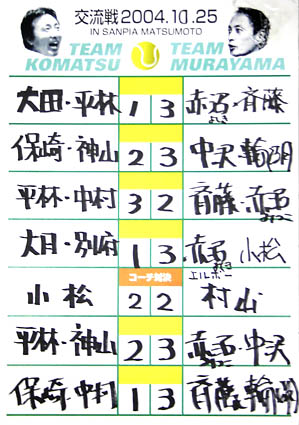 交流戦2004.10.25
IN SANPIA MATSUMOTO
TEAM KOMATSU
TEAM MURAYAMA
太田・平林 1 3 赤沼・斉藤
保崎・神山 2 3 中沢・輪湖
平林・中村 3 2 斉藤・赤沼
太田・別府 1 3 赤沼 小松
コーチ対決 エルボー
小松 2 2 村山
平林・神山 2 3 赤沼・中沢
保崎・中村 1 3 斉藤・輪湖